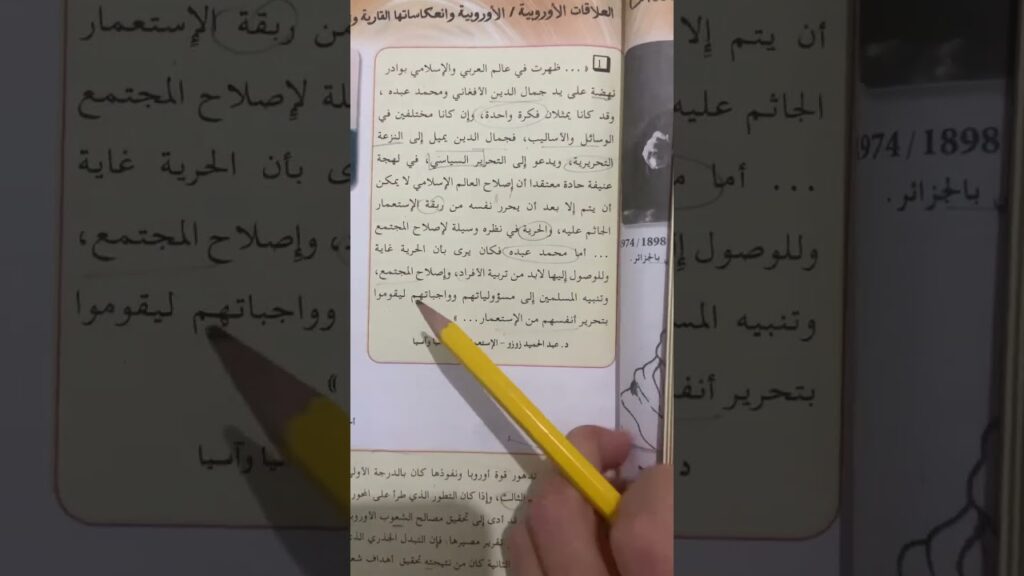 العلاقات الأوروبية / الأوروبية وانعكاساتها القارية و
1 « ... ظهرت في عالم العربي والإسلامي بوادر
نهضة على يد جمال الدين الأفغاني ومحمد عبده ،
وقد كانا يمثلان فكرة واحدة، وإن كانا مختلفين في
الوسائل والأساليب، فجمال الدين يميل إلى النزعة
التحريرية، ويدعو إلى التحرير السياسي، في لهجة
عنيفة حادة معتقدا أن إصلاح العالم الإسلامي لا يمكن
أن يتم إلا بعد أن يحرر نفسه من ربقة الإستعمار
الجاثم عليه، والحرية في نظره وسيلة لإصلاح المجتمع
... أما محمد عبده فكان يرى بأن الحرية غاية
وللوصول إليها لابد من تربية الأفراد، وإصلاح المجتمع،
وتنبيه المسلمين إلى مسؤولياتهم وواجباتهم ليقوموا
بتحرير أنفسهم من الإستعمار... »
د. عبد الحميد زوزو - الإستعمار وآسيا
1974 / 1898
بالجزائر.
دهور قوة أوروبا ونفوذها كان بالدرجة الأولى
الثالث، وإذا كان التطور الذي طرأ على المحور
قد أدى إلى تحقيق مصالح الشعوب الأوروبية
تقرير مصيرها. فإن التبدل الجذري الذي
الثانية كان من نتيجته تحقيق أهداف شعو
أن يتم إلا
من ربقة الإستعمار
الجاثم عليه
لة لإصلاح المجتمع
974 / 1898
... أما م
ى بأن الحرية غاية
بالجزائر.
وللوصول إ
، وإصلاح المجتمع،
وتنبيه المس
وواجباتهم ليقوموا
بتحرير أنف
»
د.
يا وآسيا